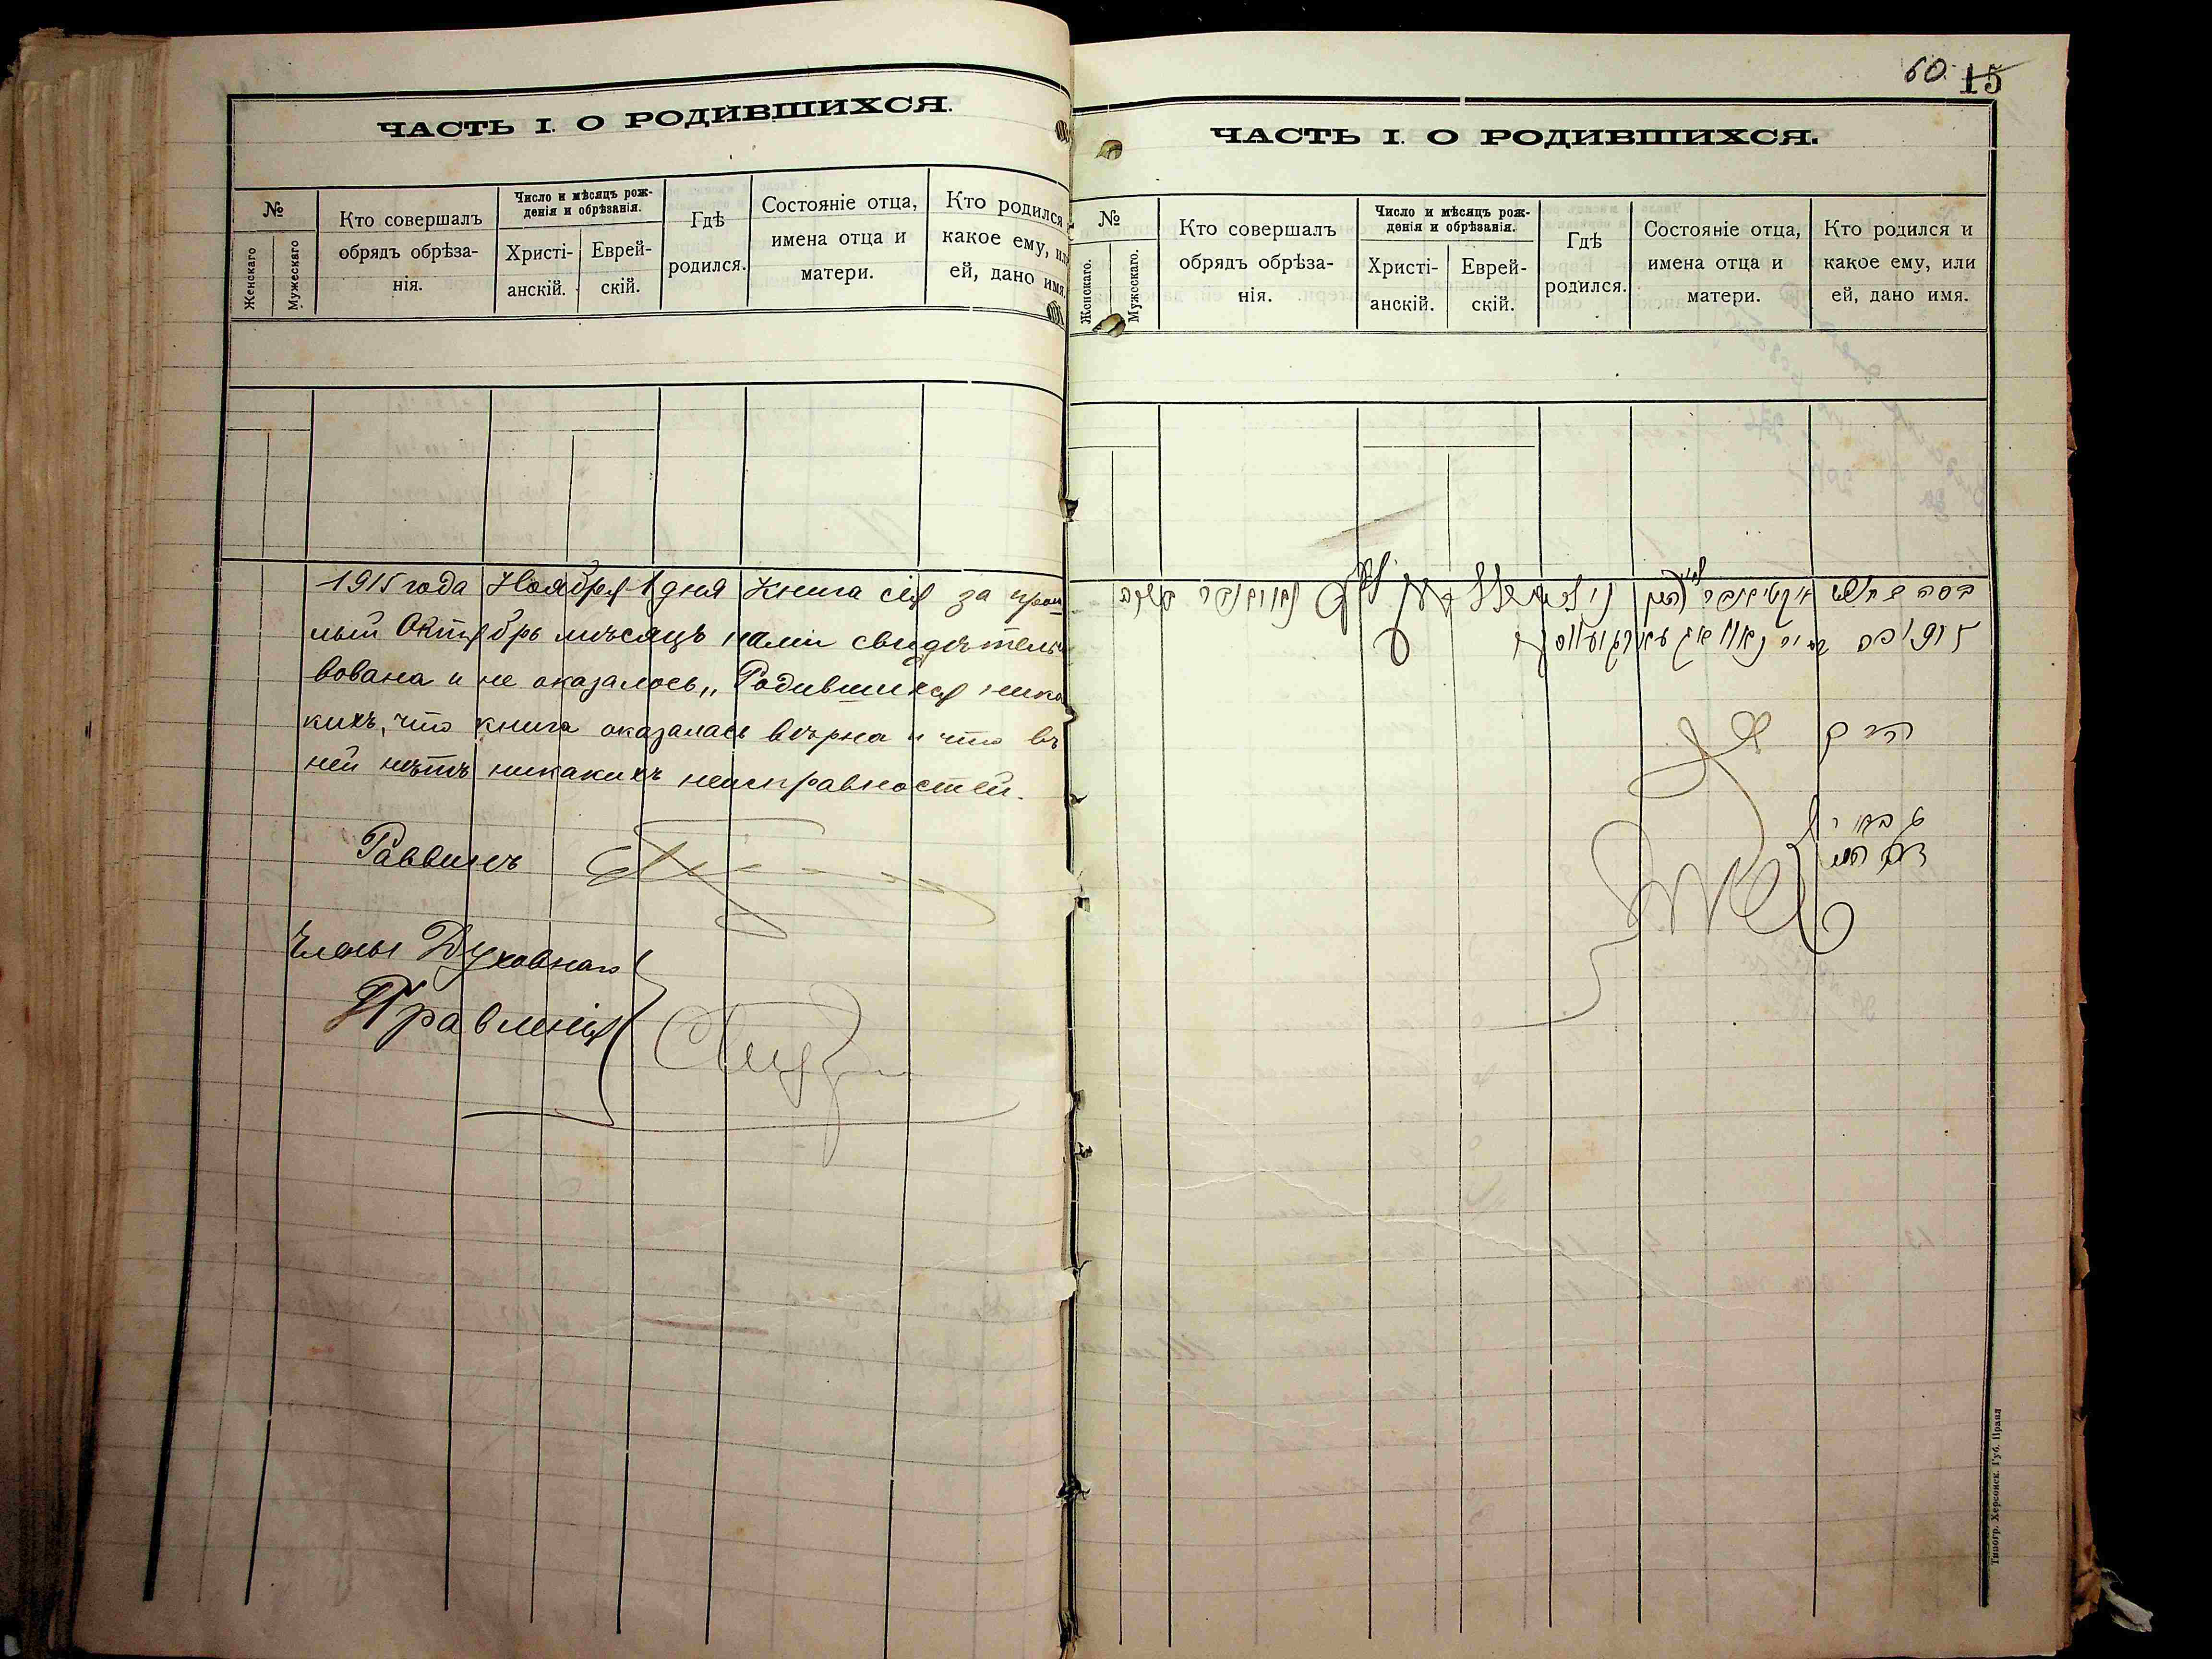 ЧАСТЬ I. О РОДИВШИХСЯ.
№
Женскаго
Мужескаго
Кто совершалъ
обрядъ обрѣза-
нія.
Число и мѣсяцъ рож-
денія и обрѣзанія.
Христі-
анскій.
Еврей-
скій.
Гдѣ
родился.
Состояніе отца,
имена отца и
матери.
Кто родился
какое ему, или
ей, дано имя.
1915 года Ноября 1 дня Книга сія за прош
лый Октябрь мѣсяцъ нами свидѣтельст
вована и не оказалось „Родившихся ника
кихъ, что книга оказалась вѣрна и что въ
ней нѣтъ никакихъ неисправностей.
Раввинъ
Члены Духовнаго
Правленія
60. 15
ЧАСТЬ I. О РОДИВШИХСЯ.
№
Женскаго.
Мужескаго.
Кто совершалъ
обрядъ обрѣза-
нія.
Число и мѣсяцъ рож-
денія и обрѣзанія.
Христі-
анскій.
Еврей-
скій.
Гдѣ
родился.
Состояніе отца,
имена отца и
матери.
Кто родился и
какое ему, или
ей, дано имя.
Типогр. Херсонск. Губ. Правл